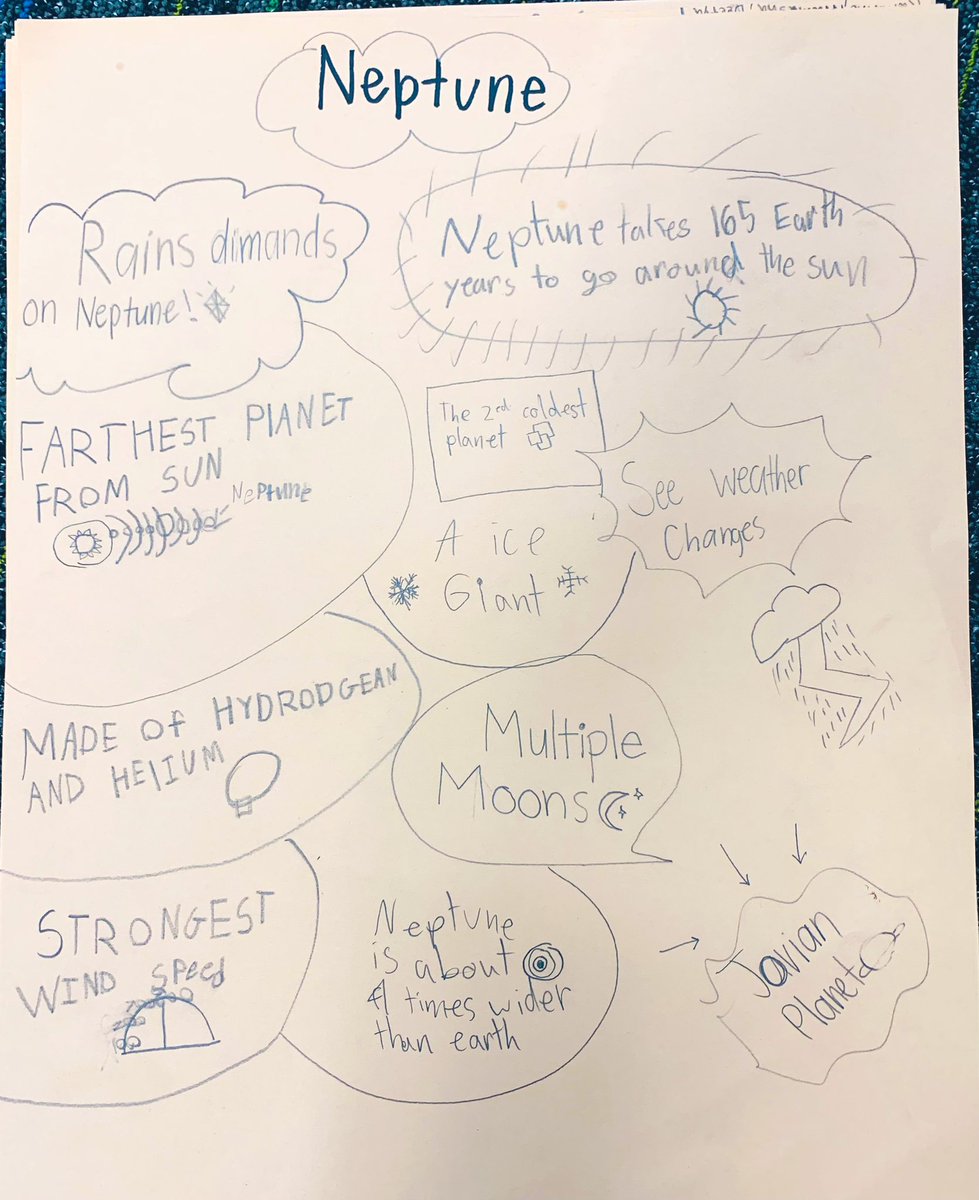 Neptune
Rains dimands
on Neptune!
Neptune takes 165 Earth
years to go around the sun
FARTHEST PlANET
FROM SUN
Neptune
The 2rd coldest
planet
See Weather
Changes
A ice
Giant
MADE of HYDRODGEAN
AND HElIUM
Multiple
Moons
STRONGEST
WIND SPeed
Neptune
is about
4 times wider
than earth
Javian
Planet